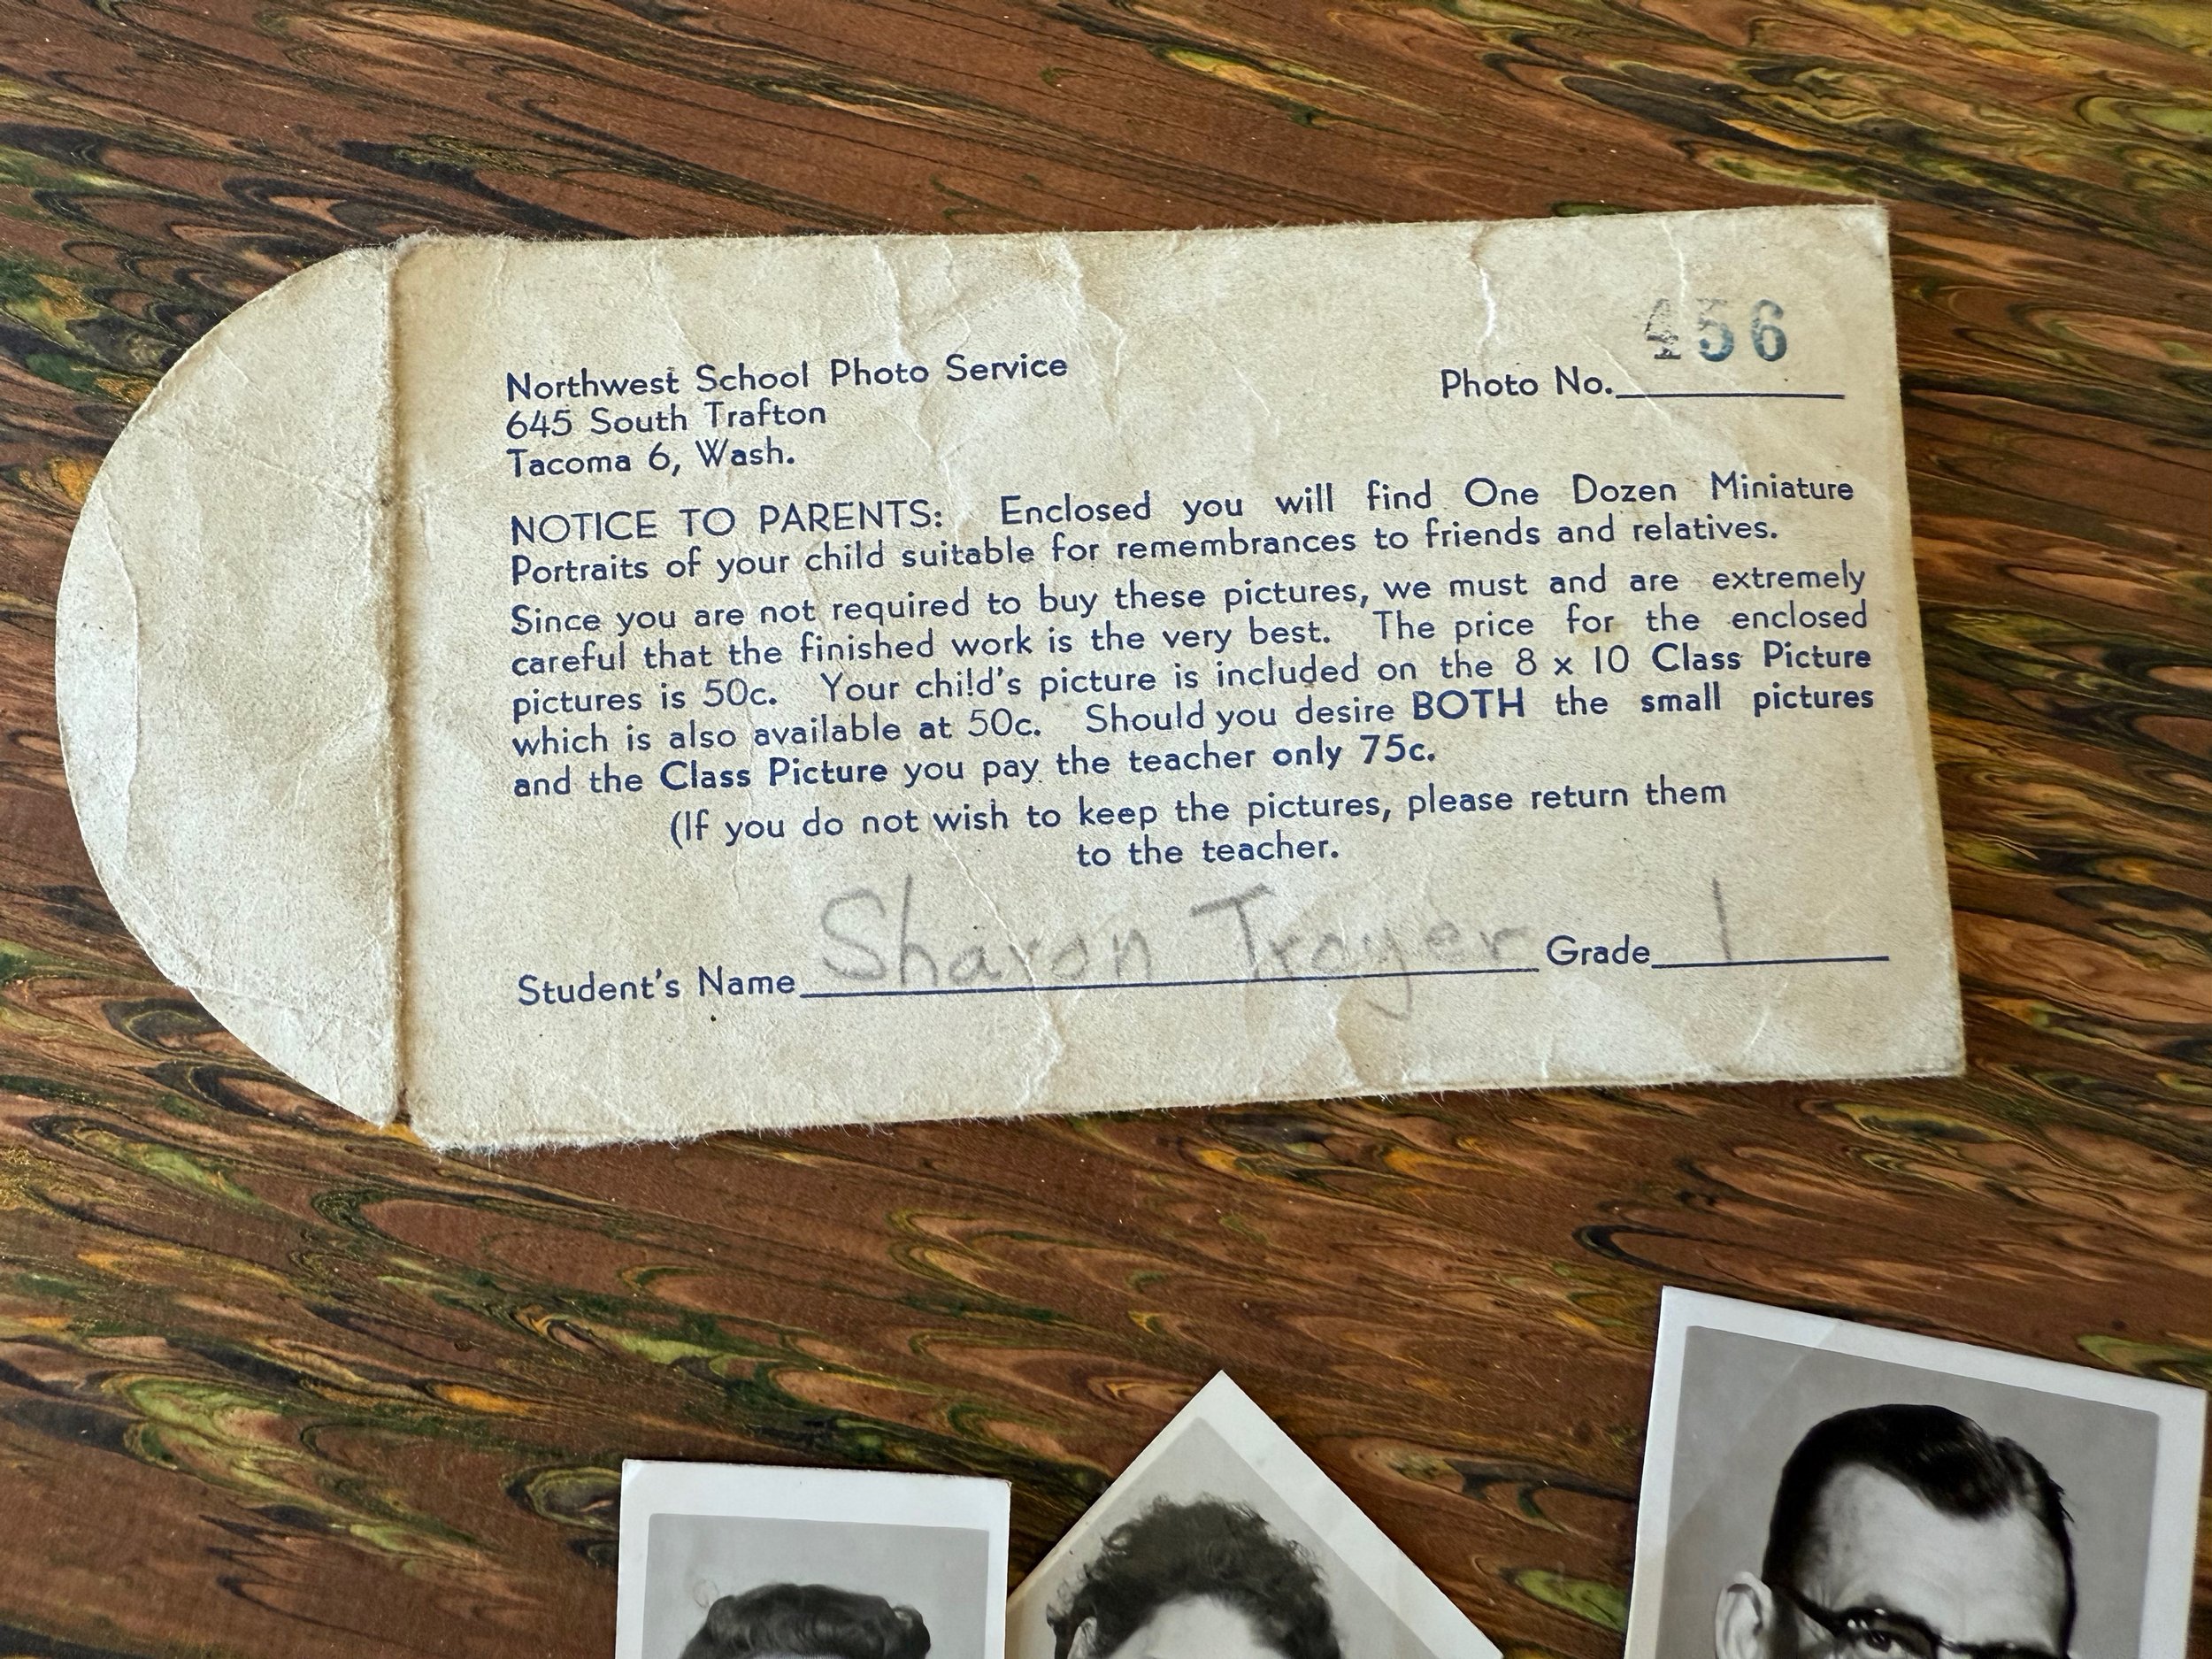 456
Northwest School Photo Service
Photo No.
645 South Trafton
Tacoma 6, Wash.
NOTICE TO PARENTS: Enclosed you will find One Dozen Miniature
Portraits of your child suitable for remembrances to friends and relatives.
Since you are not required to buy these pictures, we must and are extremely
careful that the finished work is the very best. The price for the enclosed
pictures is 50c. Your child's picture is included on the 8 x 10 Class Picture
which is also available at 50c. Should you desire BOTH the small pictures
and the Class Picture you pay the teacher only 75c.
(If you do not wish to keep the pictures, please return them
to the teacher.
Student's Name Sharon Troyer Grade 1